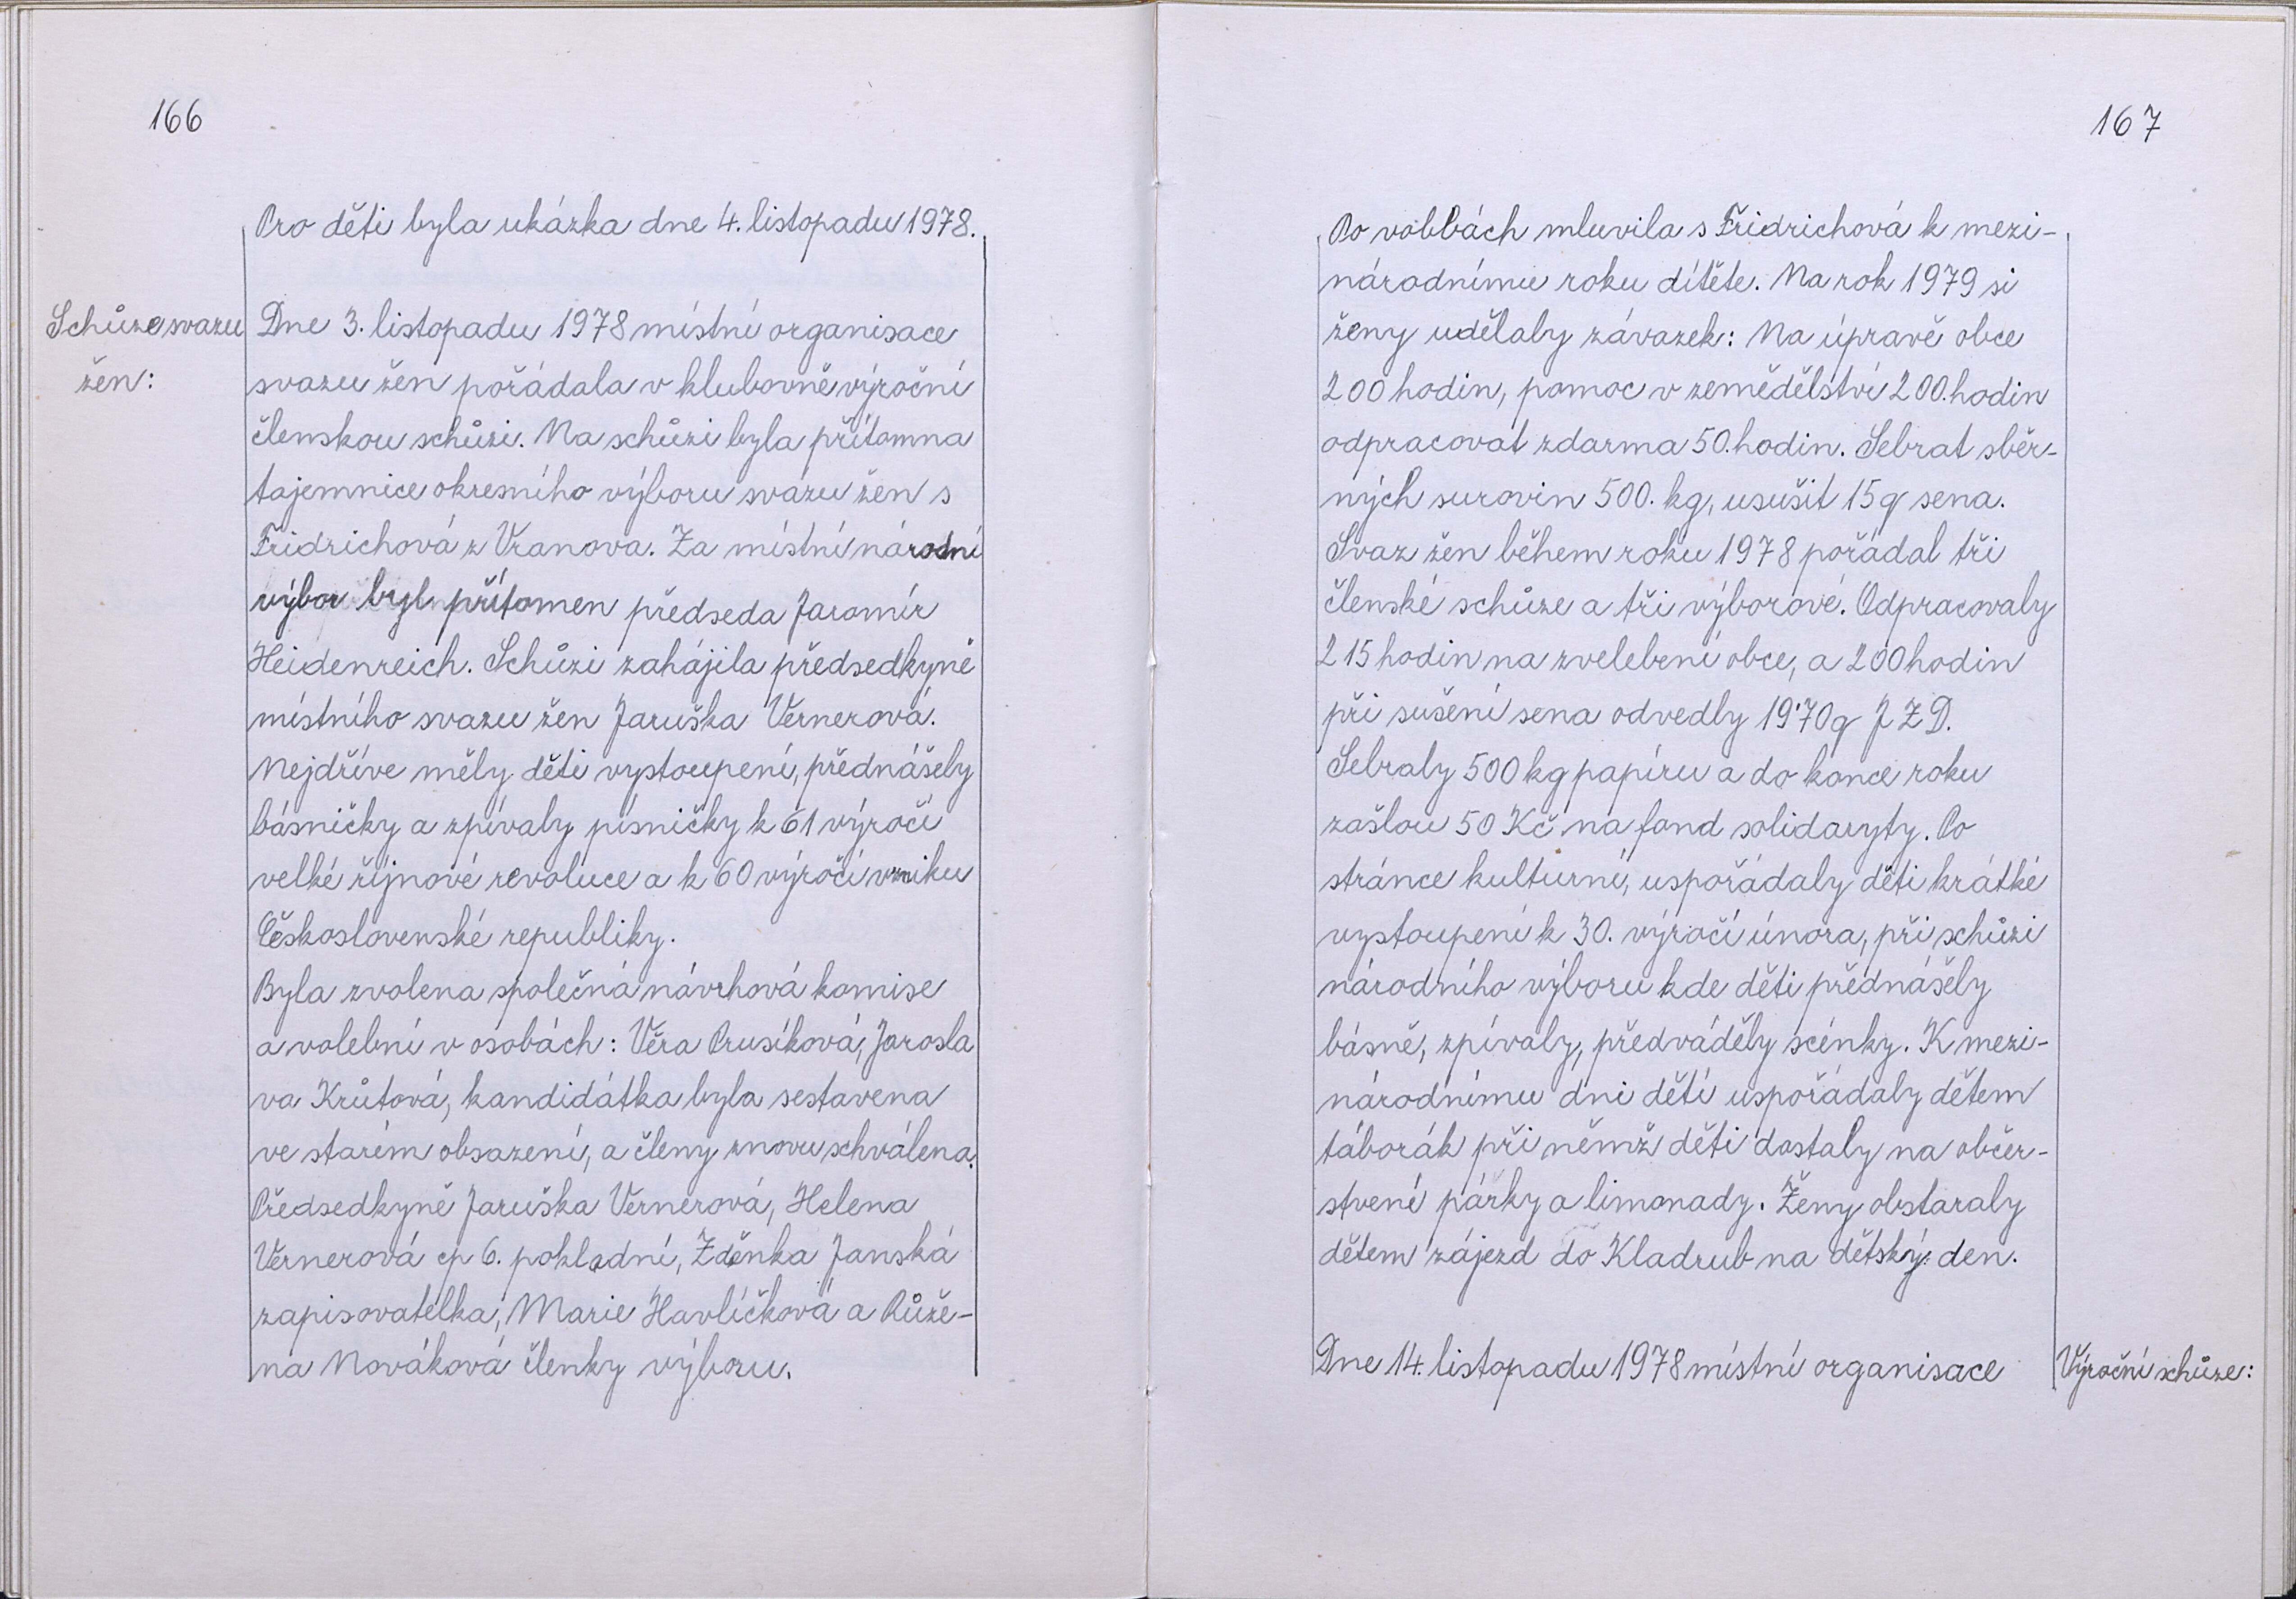 166
Pro děti byla ukázka dne 4. listopadu 1978.
Schůze svazu
žen:
Dne 3. listopadu 1978 místní organisace
svazu žen pořádala v klubovně výroční
členskou schůzi. Na schůzi byla přítomna
tajemnice okresního výboru svazu žen s
Fridrichová z Vranova. Za místní národní
výbor byl přítomen předseda Jaromír
Heidenreich. Schůzi zahájila předsedkyně
místního svazu žen Jaruška Vernerová.
Nejdříve měly děti vystoupení, přednášely
básničky a zpívaly písničky k 61 výročí
velké říjnové revoluce a k 60 výročí vzniku
Československé republiky.
Byla zvolena společná návrhová komise
a volební v osobách: Věra Prusíková, Jarosla
va Krůtová, kandidátka byla sestavena
ve starém obsazení, a členy znovu schválena.
Předsedkyně Jaruška Vernerová, Helena
Vernerová cp 6. pokladní, Zděnka Janská
zapisovatelka, Marie Havlíčková a Růže-
na Nováková členky výboru.
167
Po volbách mluvila s Fridrichová k mezi-
národnímu roku dítěte. Na rok 1979 si
ženy udělaly závazek: Na úpravě obce
200 hodin, pomoc v zemědělství 200. hodin
odpracovat zdarma 50. hodin. Sebrat sběr-
ných surovin 500. kg, usušit 15 q sena.
Svaz žen během roku 1978 pořádal tři
členské schůze a tři výborové. Odpracovaly
215 hodin na zvelebení obce, a 200 hodin
při sušení sena odvedly 19'70 q J Z D.
Sebraly 500 kg papíru a do konce roku
zašlou 50 Kč na fond solidaryty. Po
stránce kulturní, uspořádaly děti krátké
vystoupení k 30. výročí února, při schůzi
národního výboru kde děti přednášely
básně, zpívaly, předváděly scénky. K mezi-
národnímu dni dětí uspořádaly dětem
táborák při němž děti dostaly na občer-
stvení párky a limonady. Ženy obstaraly
dětem zájezd do Kladrub na dětský den.
Dne 14. listopadu 1978 místní organisace
Výroční schůze: